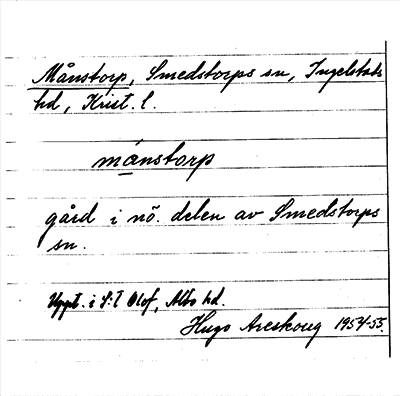 Månstorp, Smedstorps sn, Ingelstads
hd, Krist. l.
månstorp
gård i nö. delen av Smedstorps
sn.
Uppt. i S:t Olof, Albo hd.
Hugo Areskoug 1954-55.